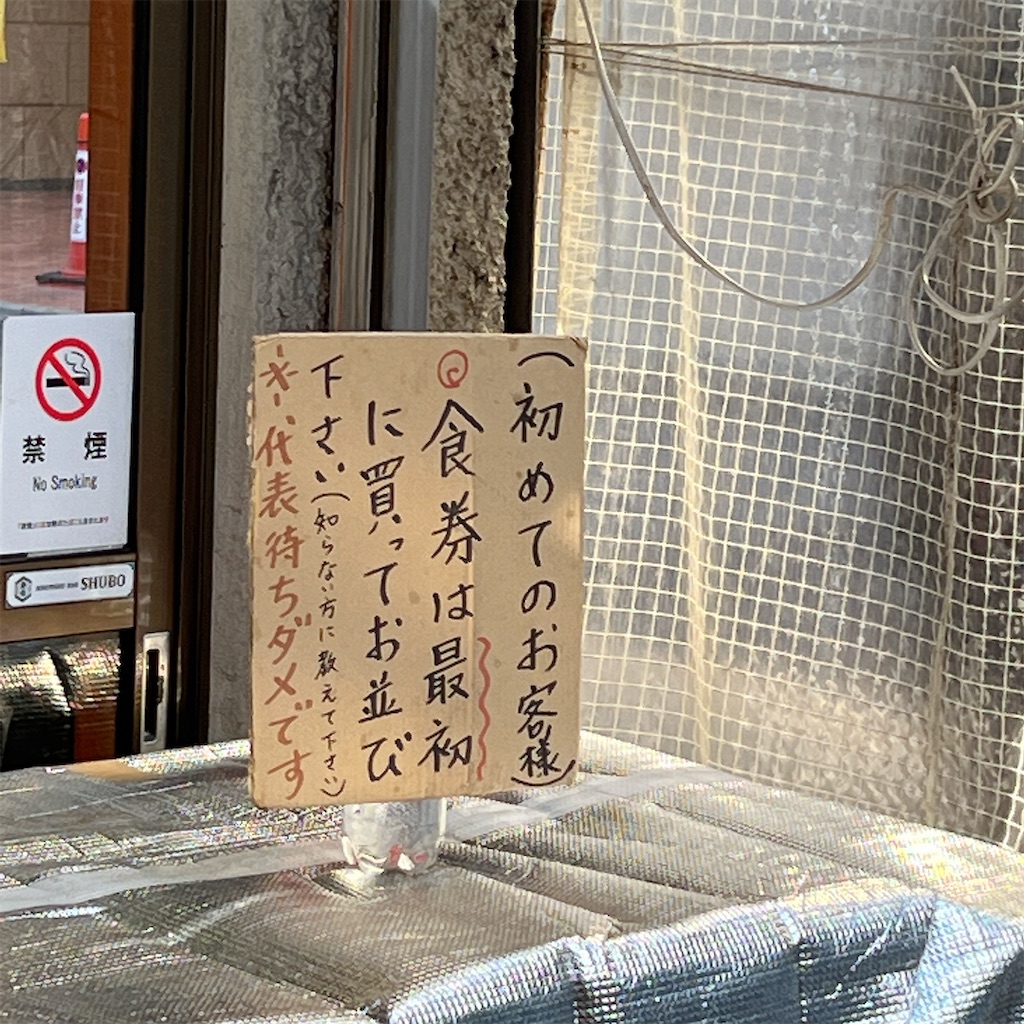 (初めてのお客様)
食券は最初
に買ってお並び
下さい(知らない方に教えて下さい)
※代表待ちダメです
禁煙
No Smoking
SHUBO
駐車禁止